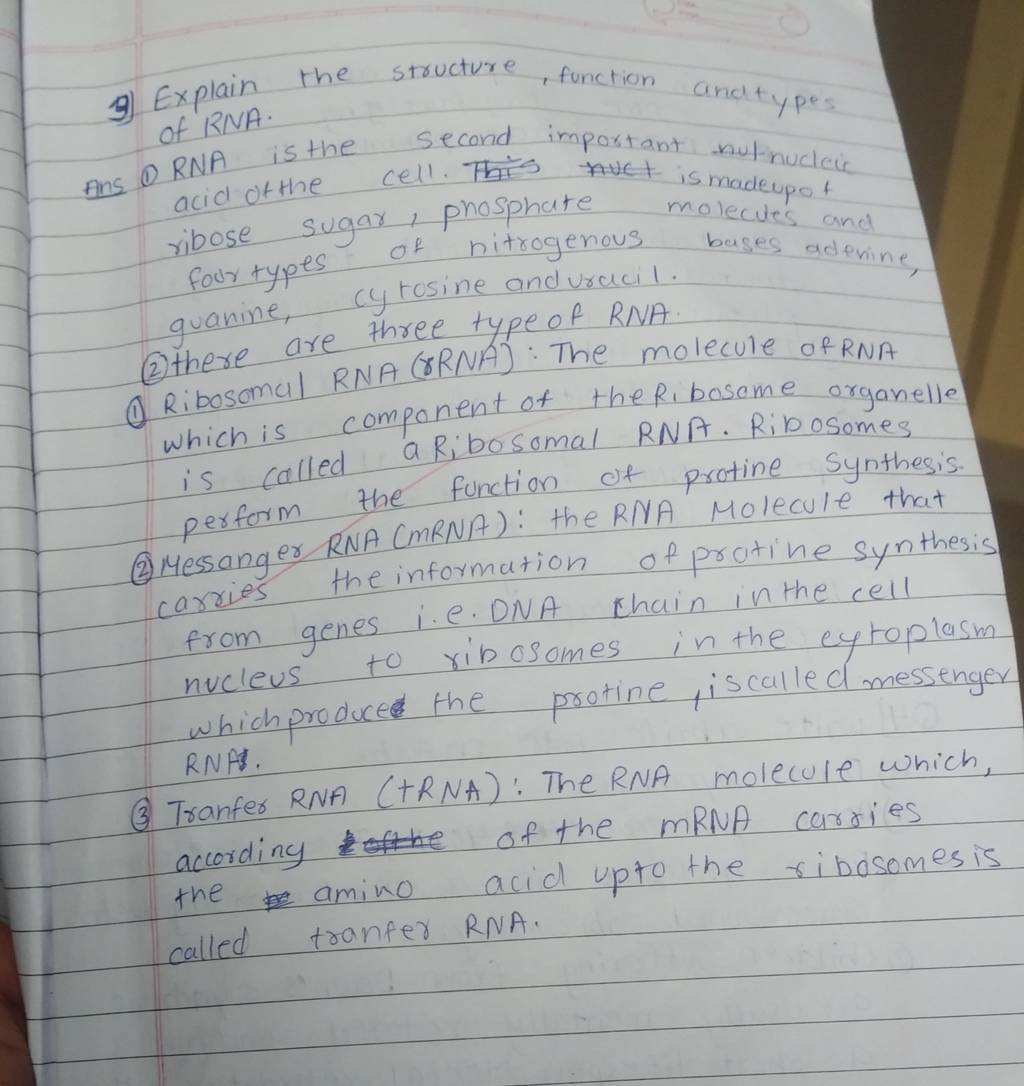 9) Explain the structure, function and types
of RNA.
Ans ① RNA is the second important nucleic
acid of the cell. is madeup of
ribose sugar, phosphate molecules and
four types of nitrogenous bases adenine,
guanine, cytosine and uracil.
② there are three type of RNA.
① Ribosomal RNA (rRNA): The molecule of RNA
which is component of the Ribosome organelle
is called a Ribosomal RNA. Ribosomes
perform the function of protine synthesis.
② Messanger RNA (mRNA): the RNA Molecule that
carries the information of protine synthesis
from genes i.e. DNA chain in the cell
nucleus to ribosomes in the cytoplasm
which produces the protine, is called messenger
RNA.
③ Tranfer RNA (tRNA): The RNA molecule which,
according of the mRNA carries
the amino acid upto the ribosomes is
called tranfer RNA.